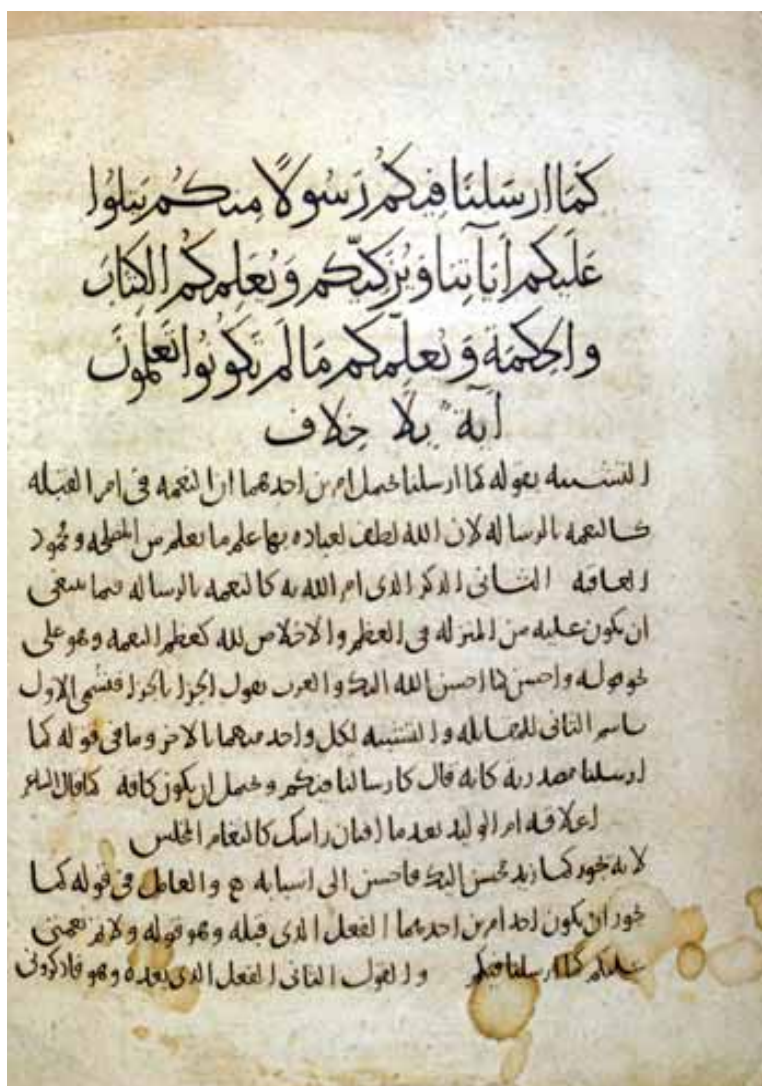 كَمَا ارسَلنَا فِيكُم رَسُولًا مِنكُم يَتلُوا
عَلَيكُم آيَاتِنَا وَيُزَكّيكُم وَيُعَلِمكُم الكِتَابَ
وَالحِكمَة وَيُعلِّمكُم مَا لَم تَكُونُوا تَعلَمُونَ
آية بِلا خِلاف
التشبيه بقوله كما ارسلنا يحتمل امرين احدهما ان النعمه فى امر القبله
كالنعمه بالرساله لان الله لطف لعباده بها علم ما يعلم من المصلحه ومحمود
العاقبه الثانى الذكر الذى امر الله به كالنعمه بالرساله فيما ينبغى
ان يكون عليه من المنزله فى العظم والاخلاص لله كعظم النعمه وهو على
نحو قوله واحسن كما احسن الله اليك والعرب تقول الجزا بالجزا فسمى الاول
باسم الثانى للمقابله والتشبيه لكل واحد منهما بالاخر وما فى قوله كما
ارسلنا مصدريه كانه قال كارسالنا فيكم ويحتمل ان يكون كافه كما قال الشاعر
اعلاقه ام الوليد بعد ما افنان راسك كالثغام المخلس
لانه يجوز كما زيد محسن اليك فاحسن الى اسبابه والعامل فى قوله كما
يجوز ان يكون احد امرين احدهما الفعل الذى قبله وهو قوله ولاتم نعمتى
عليكم كما ارسلنا فيكم والقول الثانى الفعل الذى بعده وهو فاذكرونى